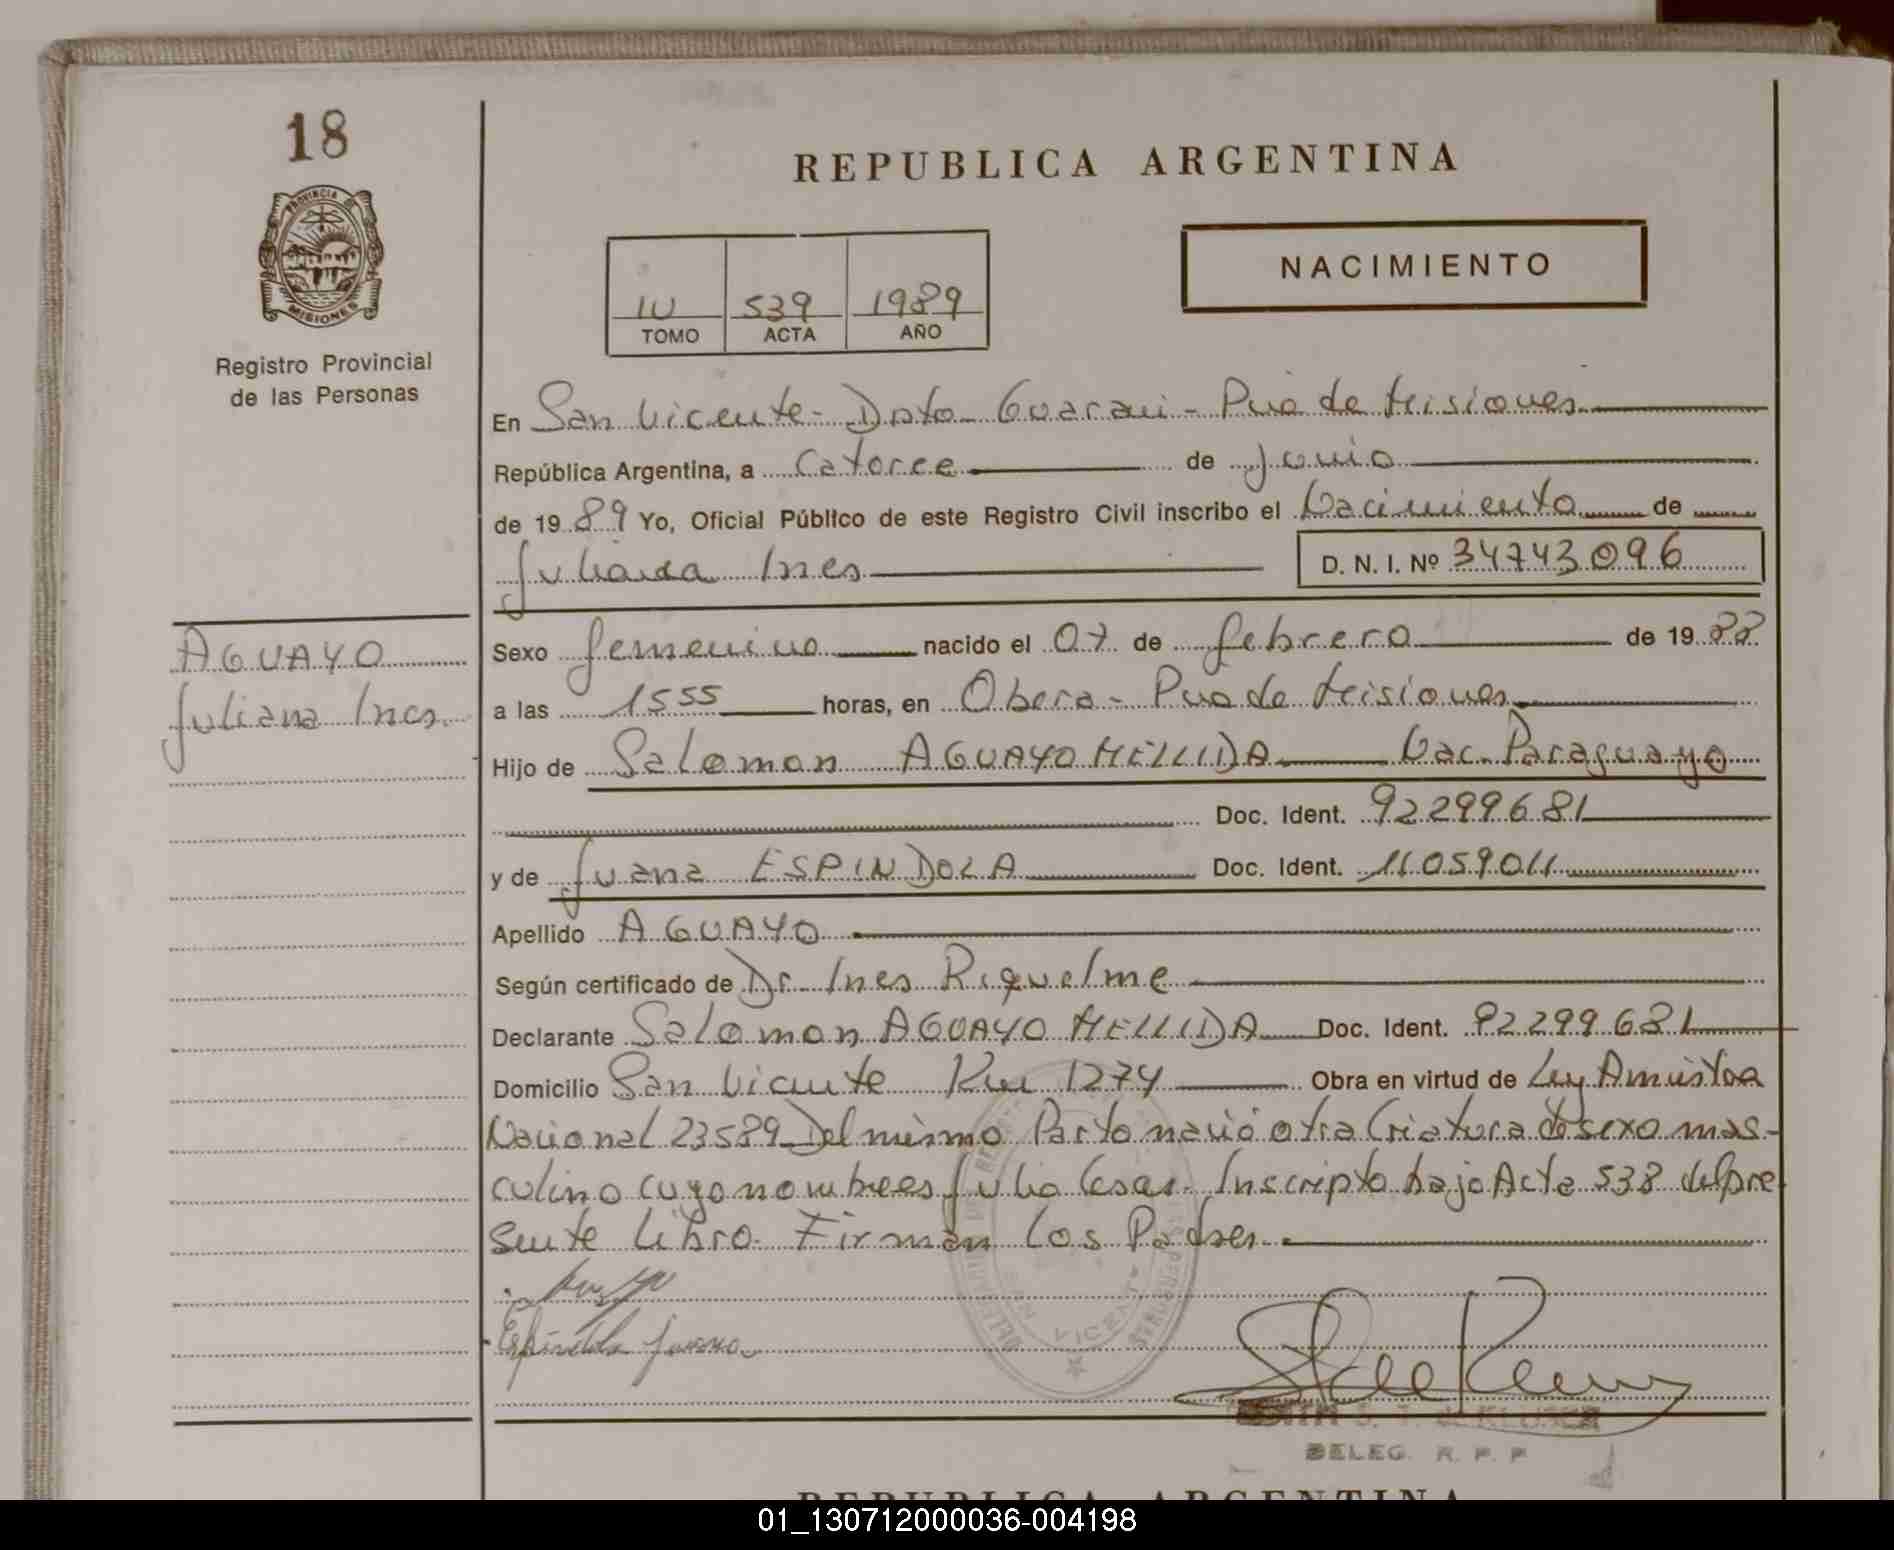 18
PROVINCIA DE
MISIONES
Registro Provincial
de las Personas
REPUBLICA ARGENTINA
NACIMIENTO
IV 539 1989
TOMO ACTA AÑO
En San Vicente - Dpto - Guarani - Pcia de Misiones
República Argentina, a Catorce de Junio
de 1989 Yo, Oficial Público de este Registro Civil inscribo el Nacimiento de
Juliana Ines D. N. I. Nº 34743096
AGUAYO
Juliana Ines
Sexo femenino nacido el 07 de febrero de 1988
a las 1555 horas, en Obera - Pcia de Misiones
Hijo de Salomon AGUAYO MELLIDA Nac. Paraguayo
Doc. Ident. 92299681
y de Juana ESPINDOLA Doc. Ident. 11059011
Apellido AGUAYO
Según certificado de Dr. Ines Riquelme
Declarante Salomon AGUAYO MELLIDA Doc. Ident. 92299681
Domicilio San Vicente Km 1274 Obra en virtud de Ley Amnistia
Nacional 23589 Del mismo Parto nació otra Criatura de sexo mas-
culino cuyo nombre es Julio Cesar. Inscripto bajo Acta 538 del pre
sente libro. Firman los Padres.
Espindola Juana
SAN VICENTE
DELEG. R. P. P
REPUBLICA ARGENTINA
01_130712000036-004198